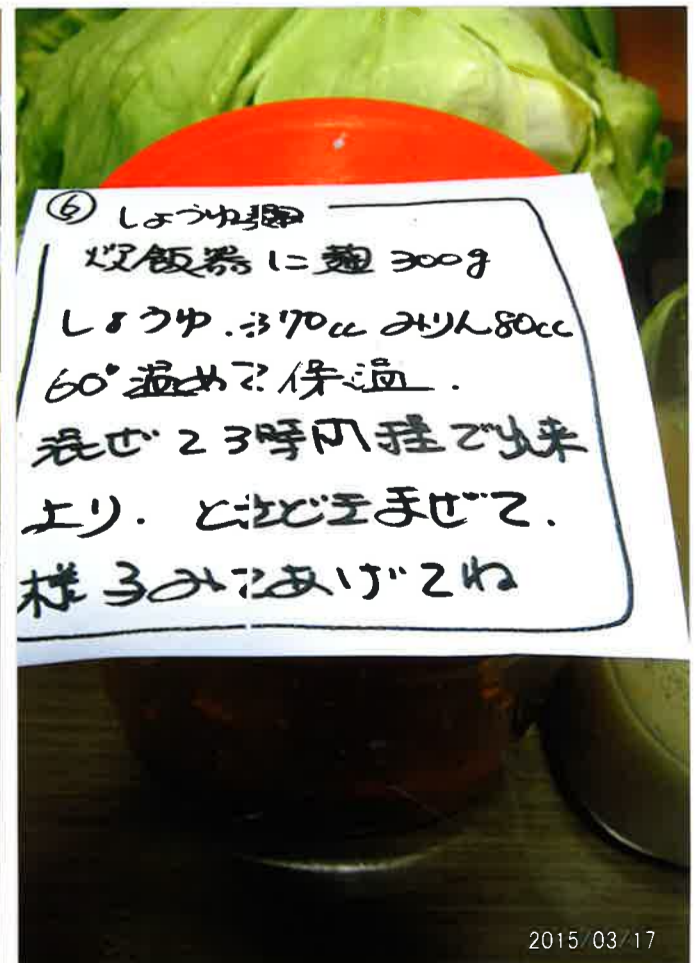 ⑥ しょうゆ麹
炊飯器に麹300g
しょうゆ.370cc みりん80cc
60°温めて保温.
混ぜ23時間程で出来
上り. ときどきまぜて.
様子みてあげてね
2015/03/17